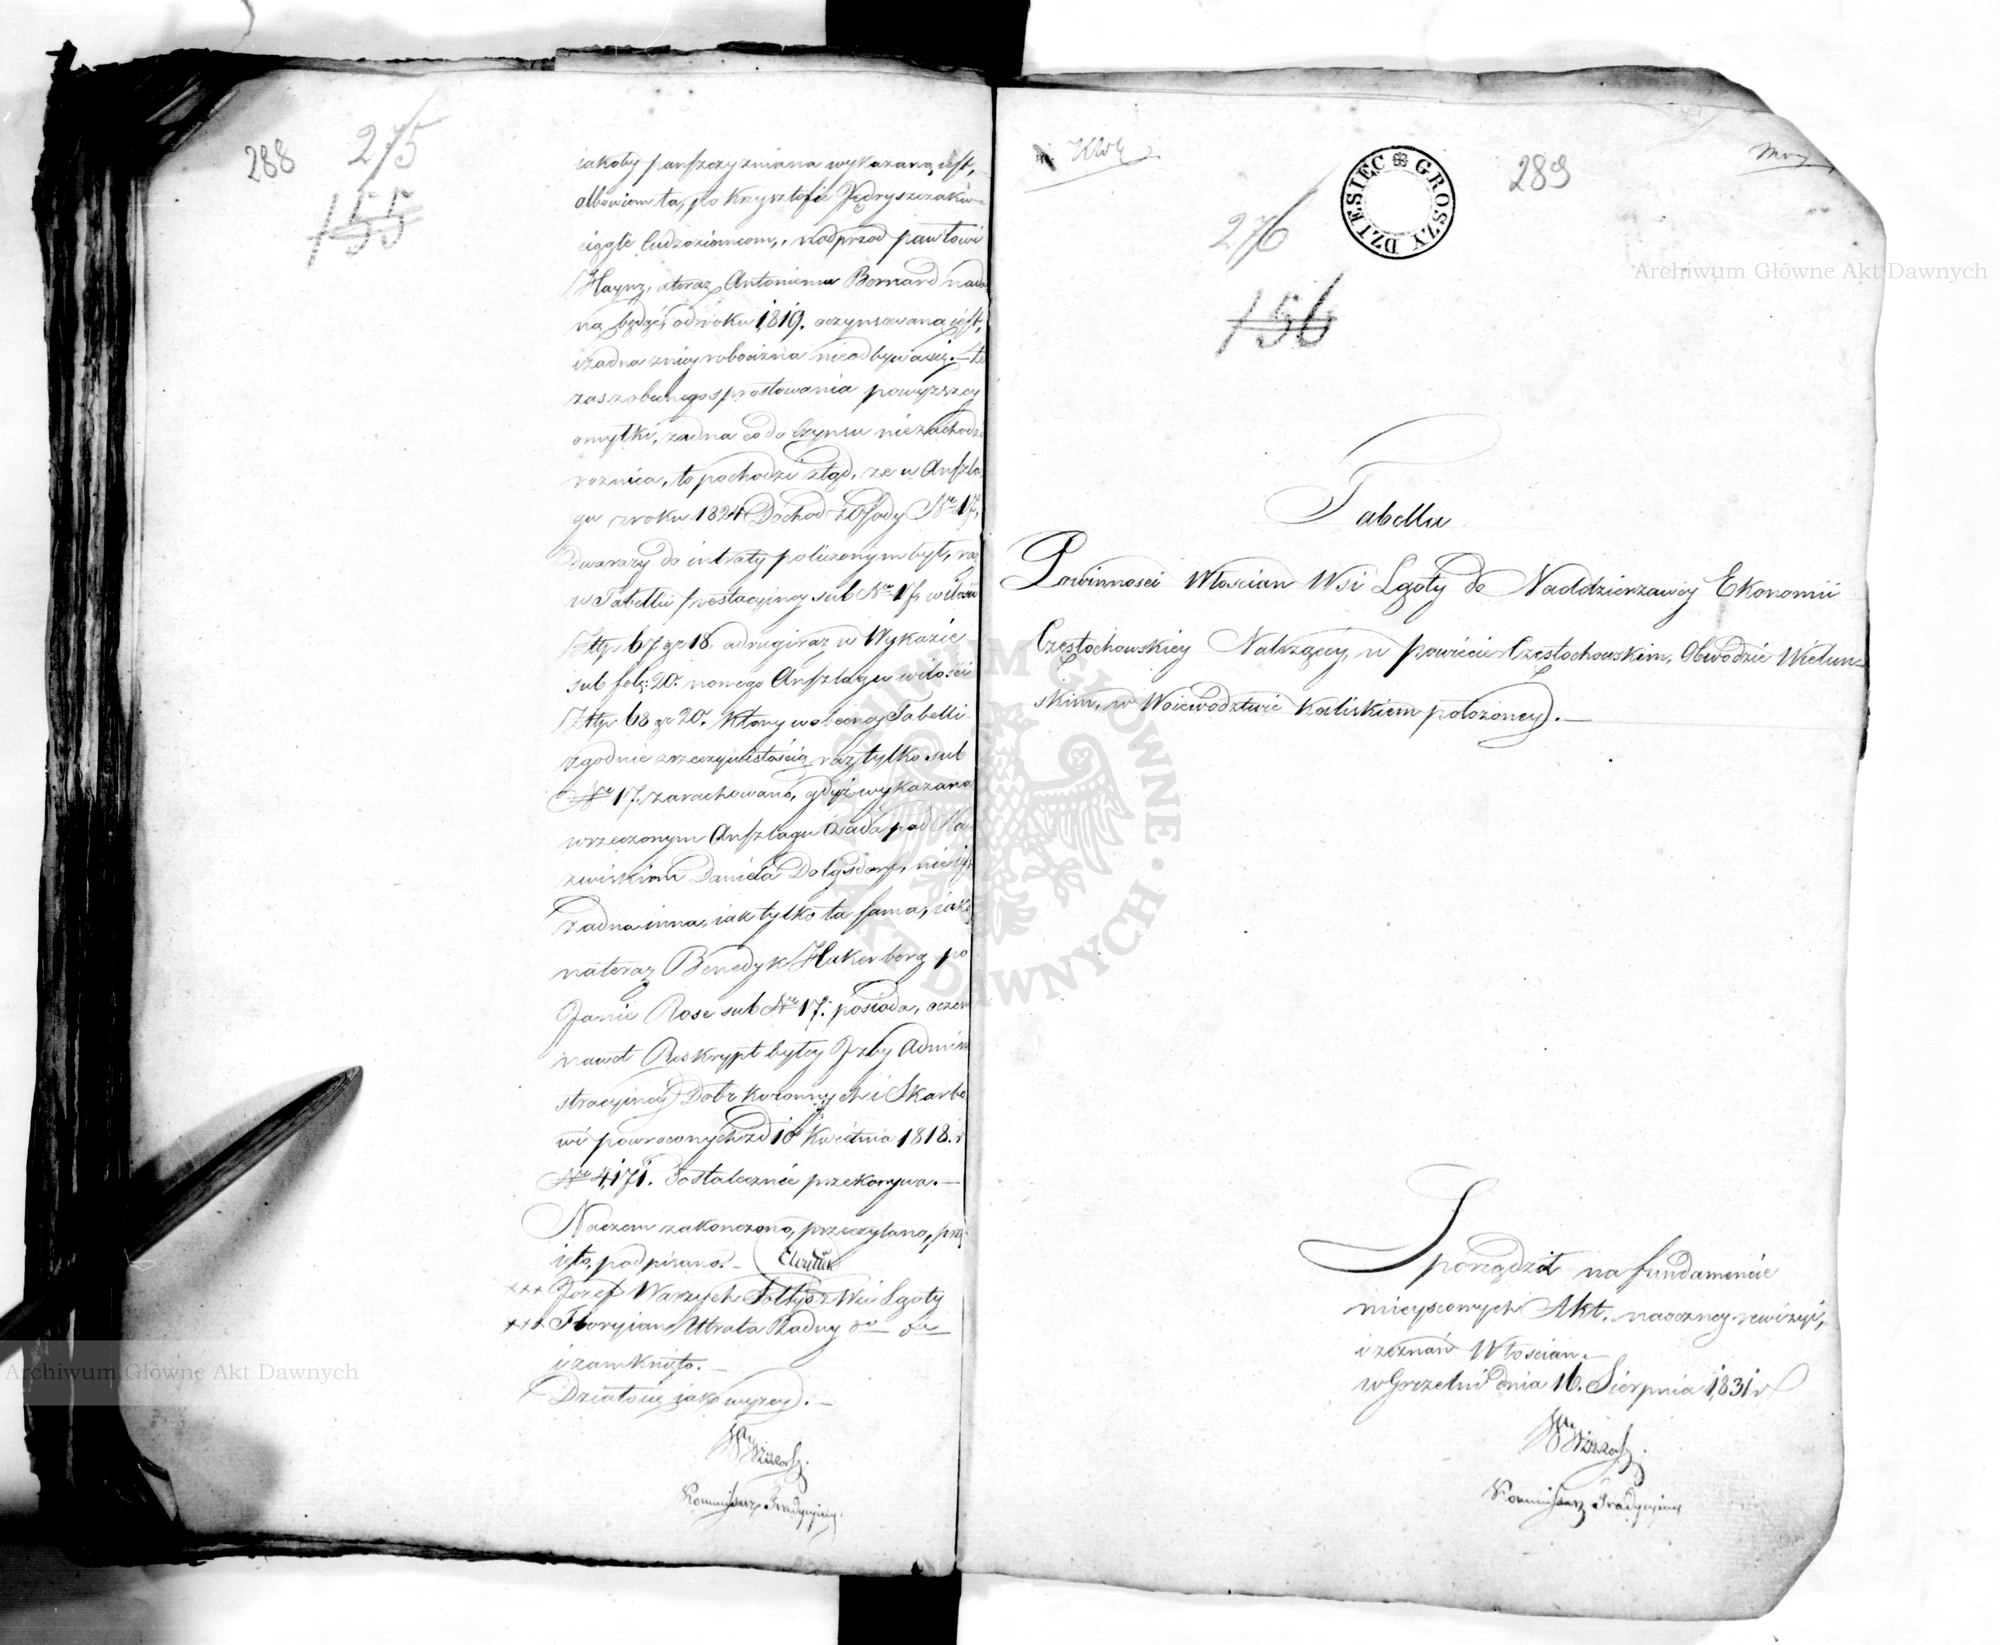 288
275
155
jakoby pańszczyzniana wykazaną jest,
albowiem ta, po Krzysztofie Jędryszczaku
ciągle Cudzoziemcom, naprzod Pawłowi
Haynz, a teraz Antoniemu Bernard nada
ną będąc, od roku 1819. oczynszowaną jest,
i żadna z niey robocizna nieodbywa się. – że
zaś z obecnego sprostowania powyższey
omyłki, żadna co do Czynszu niezachodzi
roznica, to pochodzi ztąd, że w Anszla
gu z roku 1824 Dochod z Osady Nro 17.
dwa razy do intraty policzonym był, raz
w Tabelli prestacyiney sub Nro 17. w ilości
Złtp. 67 gr 18. a drugi raz w Wykazie
sub folo: 20. nowego Anszlagu w ilości
Złtp. 68 gr 20. Ktory w obecney Tabelli
zgodnie z rzeczywistością raz tylko sub
Nro 17. zarachowano, gdyż wykazana
w rzeczonym Anszlagu Osada pod Na
zwiskiem Daniela Dolgsdorf, nie jest
żadna inna, jak tylko ta sama, jaką
na teraz Benedyk Hakenberg po
Janie Rose sub Nro 17. posiada, o czem
nawet Reskrypt byłey Izby Admini
stracyiney Dobr Koronnych i Skarbo
wi powroconych z d 10 Kwietnia 1818. r
Nro 4,171. dostatecznie przekonywa. –
Na czem zakonczono, przeczytano, przy
ięto, podpisano. –
+++ Jozef Warzych Sołtys z Wsi Lgoty
+++ Floryian Utrata Radny do do
i zamknięto. –
Działo się jak wyzey). –
Kommissarz Tradycyiny.
289
276
156
DZIESIEC GROSZY
Tabella
Powinnosci Włościan Wsi Lgoty do Naddzierzawy Ekonomii
Częstochowskiey Należącey, w Powiecie Częstochowskim, Obwodzie Wieluń
skim, w Woiewodztwie Kaliskiem położoney). –
Sporządził na fundamencie
mieyscowych Akt. naoczney rewizyi,
i zeznań Włościan. –
w Gorzelni dnia 16. Sierpnia 1831 r
Kommissarz Tradycyiny
Archiwum Główne Akt Dawnych
Archiwum Główne Akt Dawnych
ARCHIWUM GŁÓWNE AKT DAWNYCH